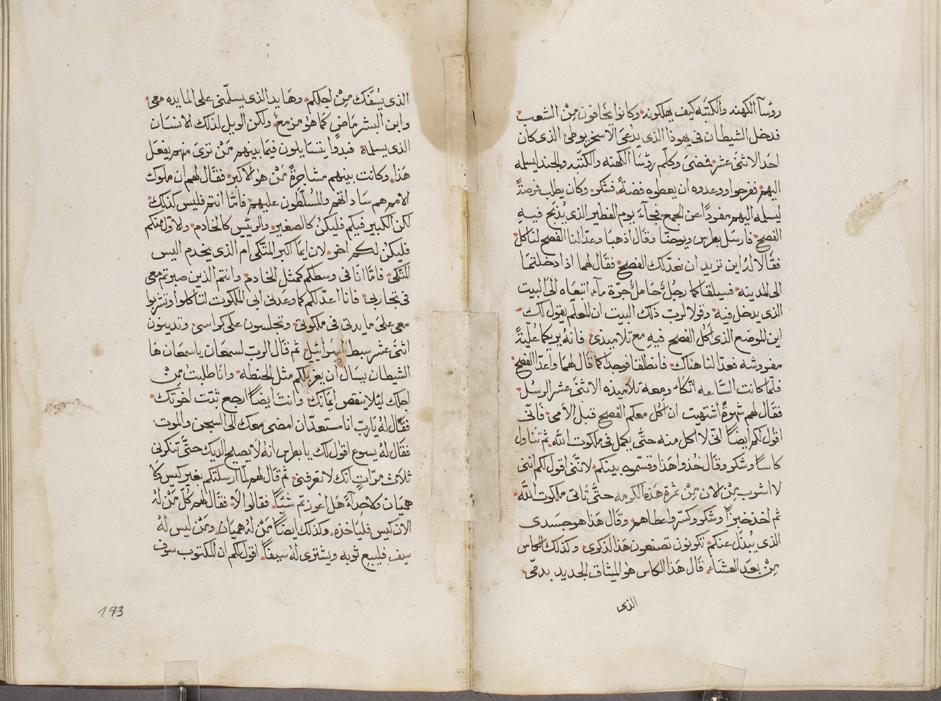 رؤسا الكهنه والكتبه كيف يهلكونه وكانوا يخافون من الشعب
فدخل الشيطان في يهوذا الذي يدعى الاسخريوطي الذي كان
احد الاثنى عشر فمضى وكلم رؤسا الكهنه والكتبه والجند ليسلمه
اليهم ففرحوا ووعدوه ان يعطوه فضة فشكر وكان يطلب فرصة
ليسلمه اليهم مفردا عن الجمع فجاء يوم الفطير الذي يذبح فيه
الفصح فارسل بطرس ويوحنا وقال اذهبا وعدا لنا الفصح لناكل
فقالا له اين تريد ان نعد لك الفصح فقال لهما اذا دخلتما
الى المدينه فسيلقاكما رجل حامل جرة ماء اتبعاه الى البيت
الذي يدخل فيه وقولا لرب ذلك البيت ان المعلم يقول لك
اين الموضع الذي اكل الفصح فيه مع تلاميذي فانه يريكما علية
مفروشه فعدا لنا هناك فانطلقا فوجدا كما قال لهما واعدا الفصح
فلما كانت الساعه اتكا ومعه تلاميذه الاثنى عشر الرسل
فقال لهم شهوة اشتهيت ان اكل معكم الفصح قبل الامي فانى
اقول لكم ايضا انى لا اكل منه حتى يكمل في ملكوت الله ثم تناول
كاسا وشكر وقال خذوا هذا وقسموه بينكم لانني اقول لكم انني
لا اشرب من الان من ثمرة هذه الكرمه حتى تاتي ملكوت الله
ثم اخذ خبزا وشكر وكسر واعطاهم وقال هذا هو جسدي
الذي يبذل عنكم تكونون تصنعون هذا لذكري وكذلك الكاس
من بعد العشاء قال هذا الكاس هو الميثاق الجديد بدمي
الذى
الذي يسفك من اجلكم وها يد الذي يسلمني على المايده معي
وابن البشر ماض كما هو مزمع ولكن الويل لذلك الانسان
الذي يسلمه فبدوا يتسايلون فيما بينهم من ترى منهم يفعل
هذا وكانت بينهم مشاجرة من هو الاكبر فقال لهم ان ملوك
الامم هم ساداتهم والمسلطون عليهم فاما انتم فليس كذلك
لكن الكبير فيكم فليكن كالصغير والريس كالخادم ولا
فليكن لكم اخر لان ايما اكبر المتكى ام الذي يخدم اليس
المتكى فاما انا في وسطكم كمثل الخادم وانتم الذين صبرتم معي
في تجاربي فانا اعد لكم كما وعدني ابي الملكوت لتاكلوا وتشربوا
معي على مايدتي في ملكوتي وتجلسون على كراسي وتدينون
اثنى عشر سبط اسرايل ثم قال الرب لسمعان يا سمعان ها
الشيطان يسال ان يغربلكم مثل الحنطه وانا طلبت من
اجلك ليلا ينقص ايمانك وانت ايضا ارجع ثبت اخوتك
فقال له يارب انا مستعد ان امضى معك الى السجن والموت
فقال له يسوع اقول لك يا بطرس انه لا يصيح الديك حتى تنكرني
ثلاث مرات انك لا تعرفني ثم قال لهم لما ارسلتكم بغير كيس ولا
هميان ولا حذا هل اعوزتم شيئا فقالوا لا فقال لهم كل من له
الان كيس فلياخذه وكذلك ايضا من له هميان ومن ليس له
سيف فليبع ثوبه ويشتري له سيفا اقول لكم ان المكتوب سوف
193